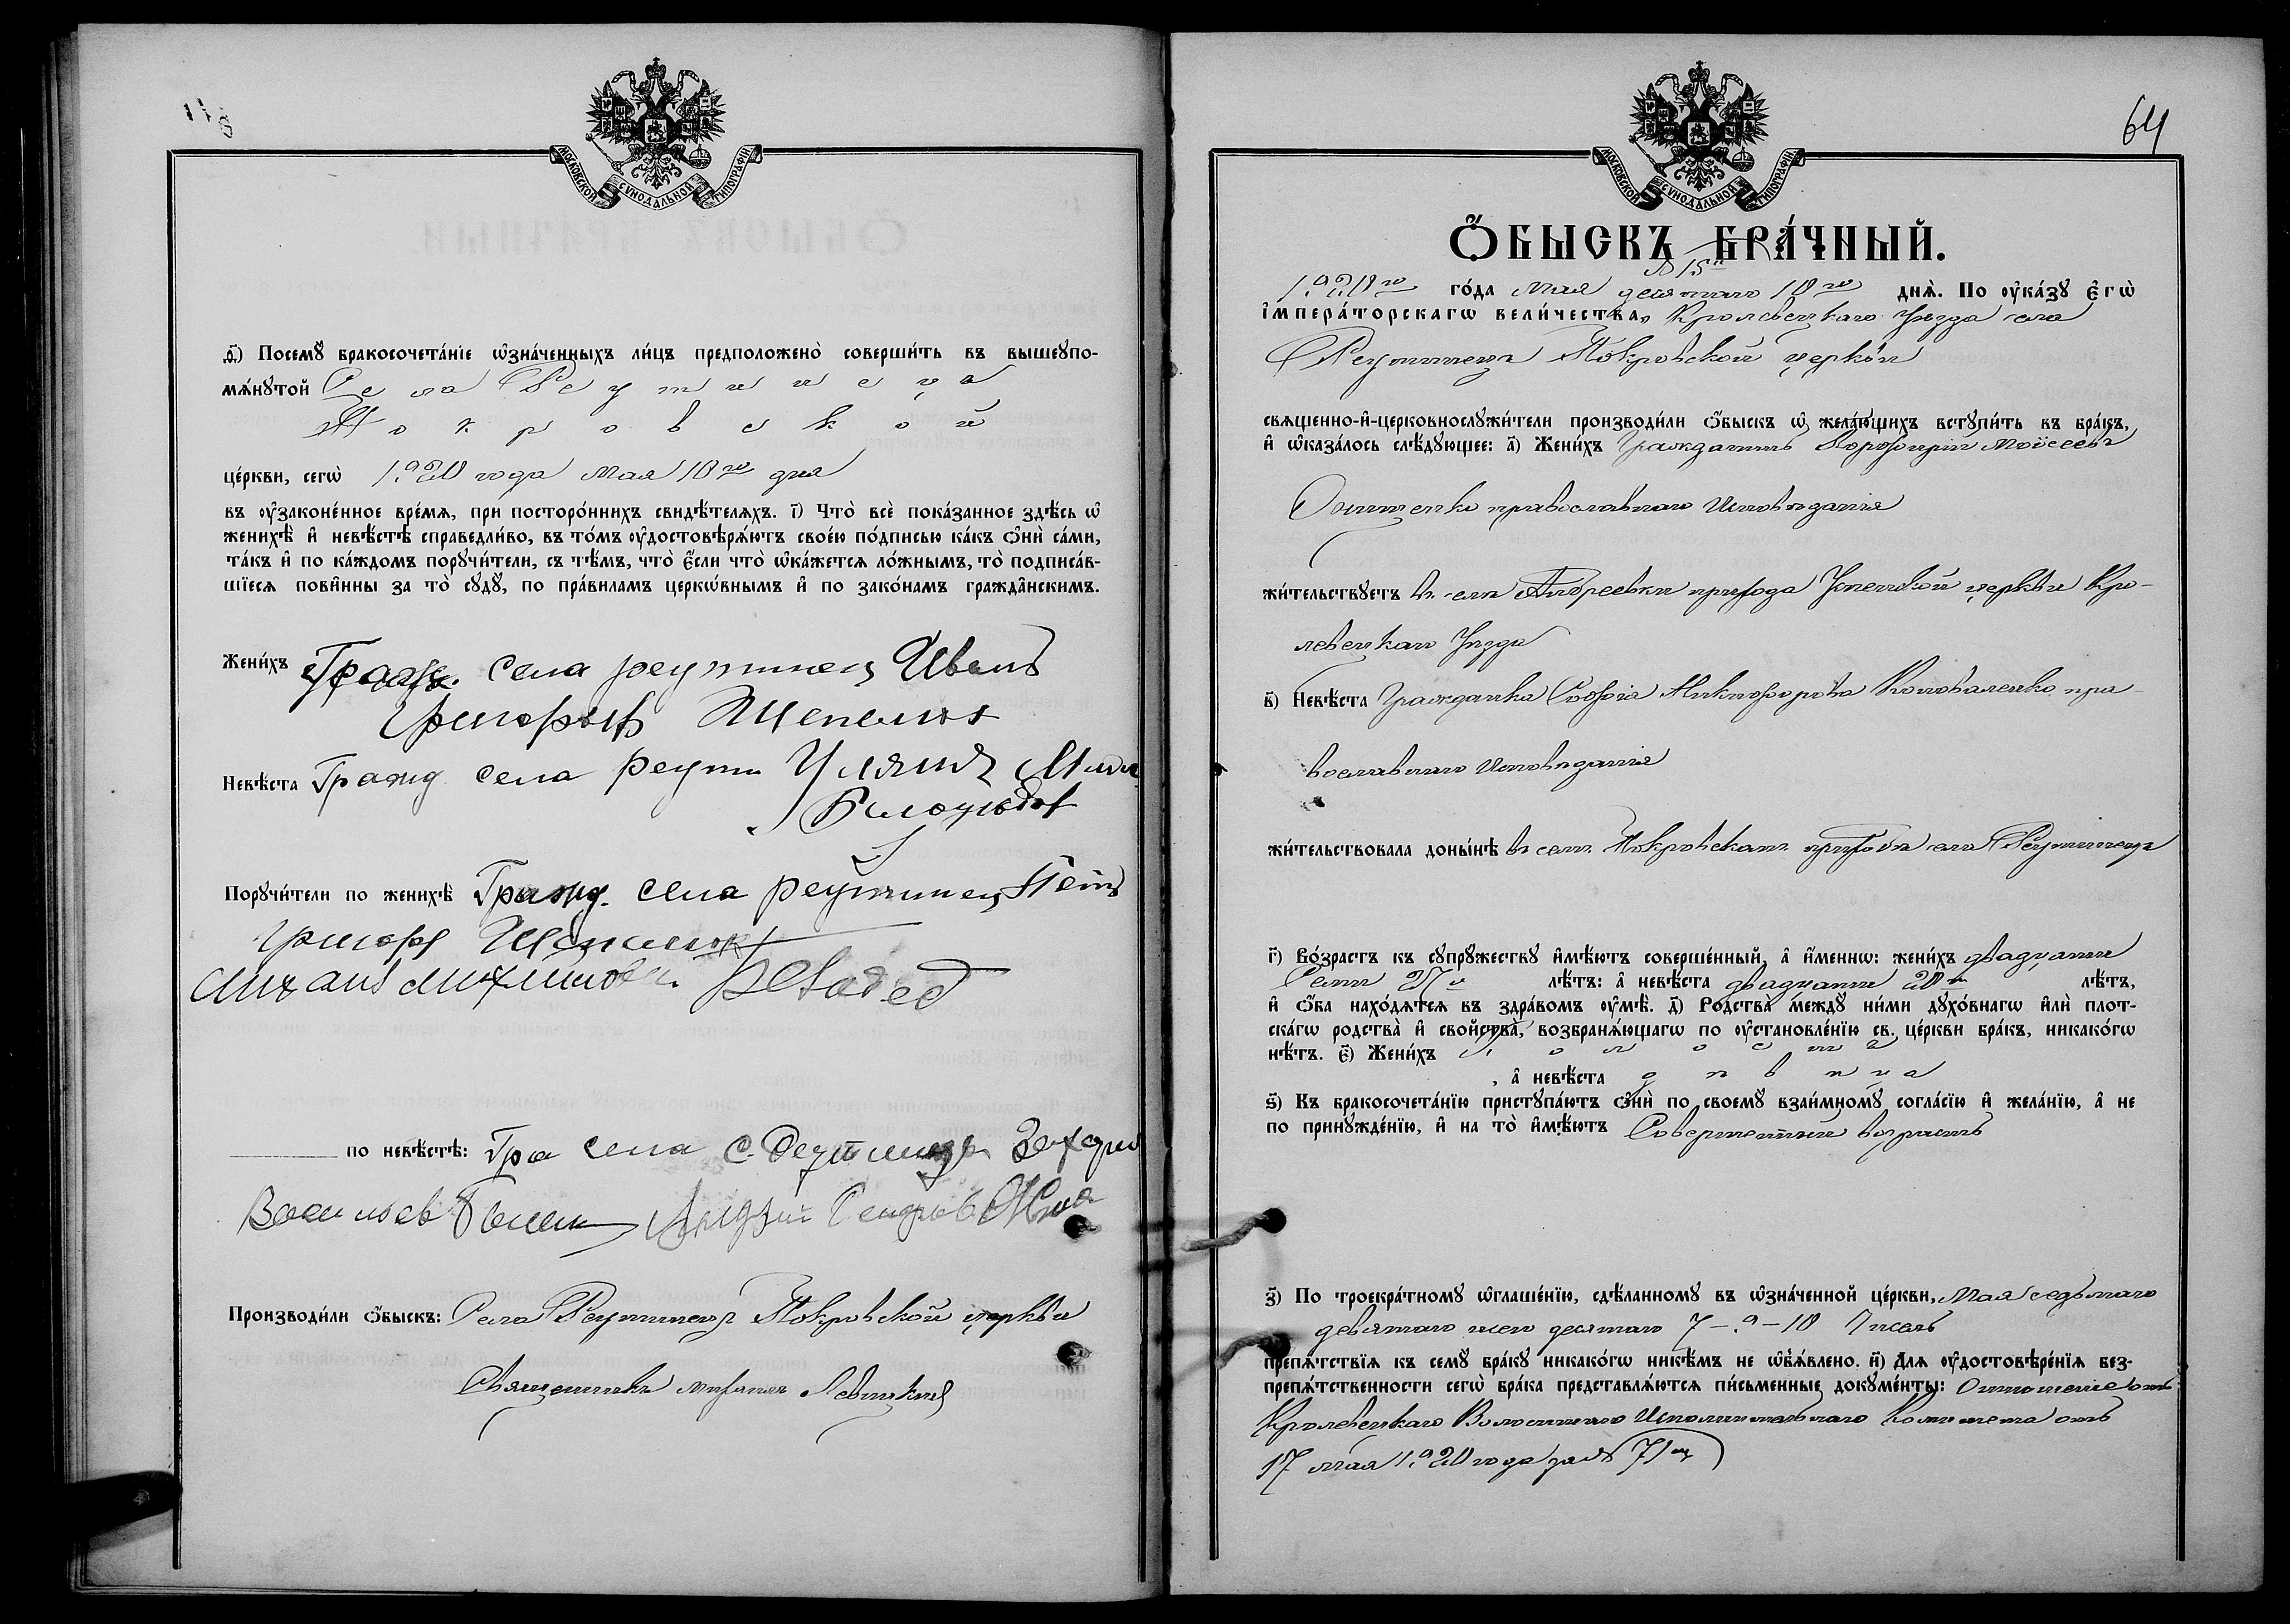 МОСКОВСКОЙ СѴНОДАЛЬНОЙ ТИПОГРАФІИ.
д҃) Посемꙋ̀ бракосочета́нїе ѡ҆зна́ченныхъ ли́цъ предположено̀ соверши́ть въ вышеꙋпо-
мѧ́нꙋтой Села Реутинецъ
Покровской
це́ркви, сегѡ̀ 1920 года Мая 10го дня
въ ᲂу҆законе́нное вре́мѧ, при посторо́ннихъ свидѣ́телѧхъ. і҃) Что̀ всѐ пока́занное здѣ́сь ѡ҆
женихѣ̀ и҆ невѣ́стѣ справедли́во, въ то́мъ ᲂу҆достовѣрѧ́ютъ свое́ю по́дписью ка́къ ѻ҆нѝ са́ми,
та́къ и҆ по ка́ждомъ порꙋчи́тели, съ тѣ́мъ, что̀ є҆́сли что̀ ѡ҆ка́жетсѧ ло́жнымъ, то̀ подписа́в-
шїесѧ пови́нны за то̀ сꙋдꙋ̀, по пра́виламъ церкѡ́внымъ и҆ по зако́намъ гражда̂нскимъ.
Жени́хъ Гражд. села реутинец Иванъ
Григорьев
Невѣ́ста Гражд села реути Уляния
Порꙋчи́тели по женихѣ̀ Гражд. села реутинец Петръ
Григорь
Михаил Михайлов
по невѣ́стѣ: Гра села с. Реутинецъ Захарий
Васильев
Производи́ли ѻ҆́быскъ: Села Реутинецъ Покровской церкви
Священникъ Михаилъ Левицкій
64
МОСКОВСКОЙ СѴНОДАЛЬНОЙ ТИПОГРАФІИ.
Ѻ҆́БЫСКЪ БРА́ЧНЫЙ.
№ 15й
1920го го́да Мая десятаго 10го днѧ̀. По ᲂу҆ка́зꙋ Є҆гѡ̀
І҆мпера́торскагѡ вели́чества, Кролевецкаго Уѣзда села
Реутинецъ Покровской церкви
свѧще́нно-и҆-церковнослꙋжи́тели производи́ли ѻ҆́быскъ ѡ҆ жела́ющихъ встꙋпи́ть въ бра́къ,
и҆ ѡ҆каза́лось слѣ́дꙋющее: а҃) Жени́хъ Гражданинъ Порфирій Моисеевъ
Онищенко православнаго Исповѣданія
жи́тельствꙋетъ въ селѣ Андреевки прихода Успенской церкви Кро-
левецкаго Уѣзда
в҃) Невѣ́ста Гражданка Софія Никифорова Коноваленко пра-
вославнаго Исповѣданія
жи́тельствовала доны́нѣ въ сем. Покровскомъ приходѣ села Реутинецъ
г҃) Во́зрастъ къ сꙋпрꙋ́жествꙋ и҆мѣ́ютъ соверше́нный, а҆ и҆́меннѡ: жени́хъ двадцати
Семи 27и лѣ́тъ: а҆ невѣ́ста двадцати 20и лѣ́тъ,
и҆ ѻ҆́ба нахо́дѧтсѧ въ здра́вомъ ᲂу҆мѣ̀. д҃) Родства̀ междꙋ̀ ни́ми дꙋхо́внагѡ и҆лѝ плот-
ска́гѡ родства̀ и҆ свойства̀, возбранѧ́ющагѡ по ᲂу҆становле́нїю св. це́ркви бра́къ, никако́гѡ
нѣ́тъ. є҃) Жени́хъ холостъ
, а҆ невѣ́ста дѣвица
ѕ҃) Къ бракосочета́нїю пристꙋпа́ютъ ѻ҆нѝ по своемꙋ̀ взаи́мномꙋ согла́сїю и҆ жела́нїю, а҆ не
по принꙋжде́нїю, и҆ на то̀ и҆мѣ́ютъ Совершенный возрастъ
з҃) По троекра́тномꙋ ѡ҆глаше́нїю, сдѣ́ланномꙋ въ ѡ҆зна́ченной це́ркви, Мая седьмаго
девятаго десятаго 7 – 9 – 10 чиселъ
препѧ́тствїѧ къ семꙋ̀ бра́кꙋ никако́гѡ никѣ́мъ не ѡ҆б̾ѧ́влено. и҃) Длѧ ᲂу҆достовѣре́нїѧ без-
препѧ́тственности сегѡ̀ бра́ка представлѧ́ютсѧ пи́сьменные докꙋме́нты: Отношеніе отъ
Кролевецкаго Волостнаго Исполнительнаго Комитета отъ
17 мая 1920 года за № 71мъ